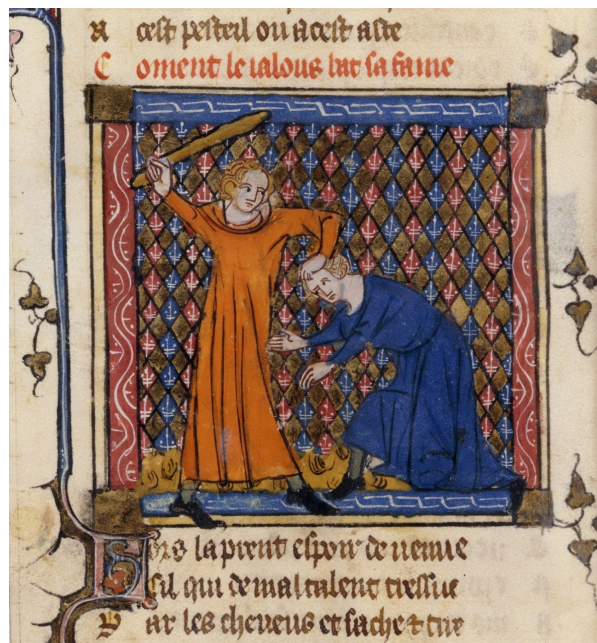 A cest pesteil ou a cest aste
Coment le ialous bat sa fame
Lors la prent espoir de uenue
Cil qui de maltalent tressue
Par les cheueus et sache ⁊ tire